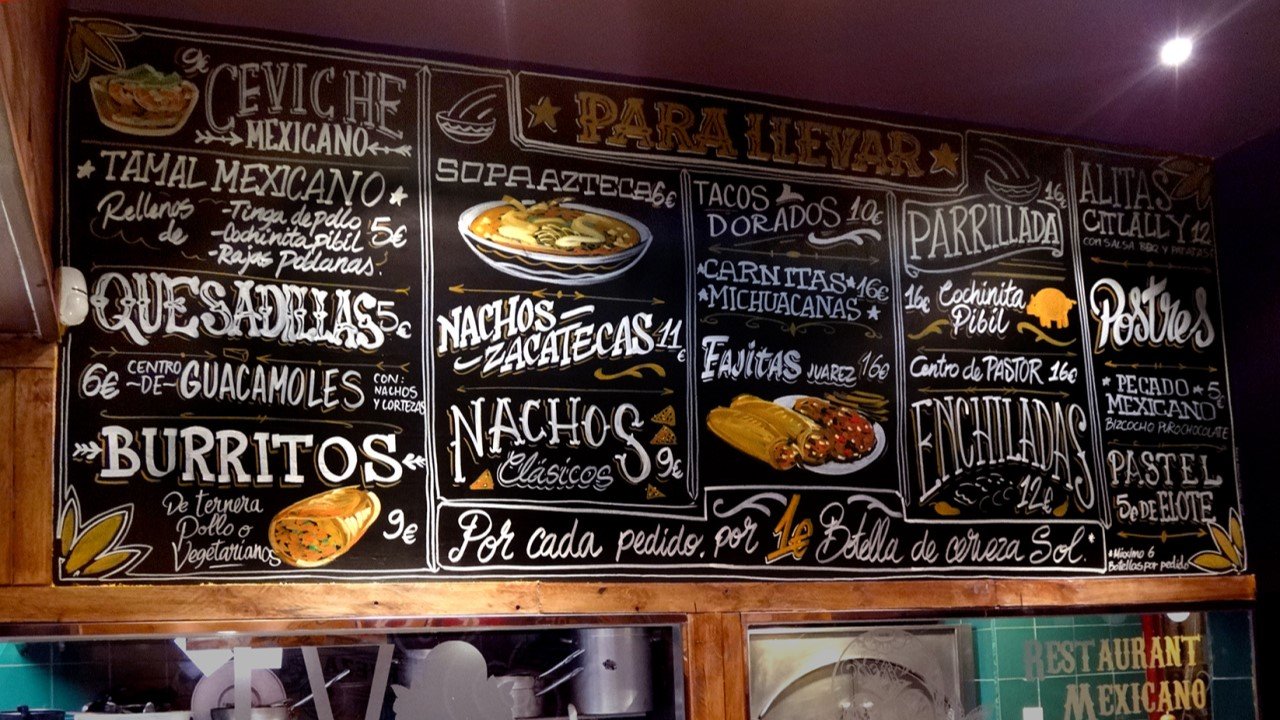 9€ CEVICHE
MEXICANO
TAMAL MEXICANO
Rellenos de
-Tinga de pollo
-Cochinita Pibil
-Rajas Poblanas.
5€
QUESADILLAS 5€
6€ CENTRO -DE- GUACAMOLES
CON: NACHOS
Y CORTEZAS
BURRITOS
De ternera
Pollo o
Vegetarianos
9€
PARA LLEVAR
SOPA AZTECA 6€
NACHOS
ZACATECAS 11€
NACHOS
Clásicos 9€
TACOS
DORADOS 10€
CARNITAS 16€
MICHUACANAS
FAJITAS JUAREZ 16€
16€
PARRILLADA
16€ Cochinita
Pibil
Centro de PASTOR 16€
ENCHILADAS
12€
ALITAS
CITLALLY 12
CON SALSA BBQ Y PATATAS
Postres
PECADO 5€
MEXICANO
BIZCOCHO PURO CHOCOLATE
PASTEL
5€ DE ELOTE
Por cada pedido, por 1€ Botella de cerveza Sol.*
*Máximo 6
Botellas por pedido
RESTAURANT
MEXICANO